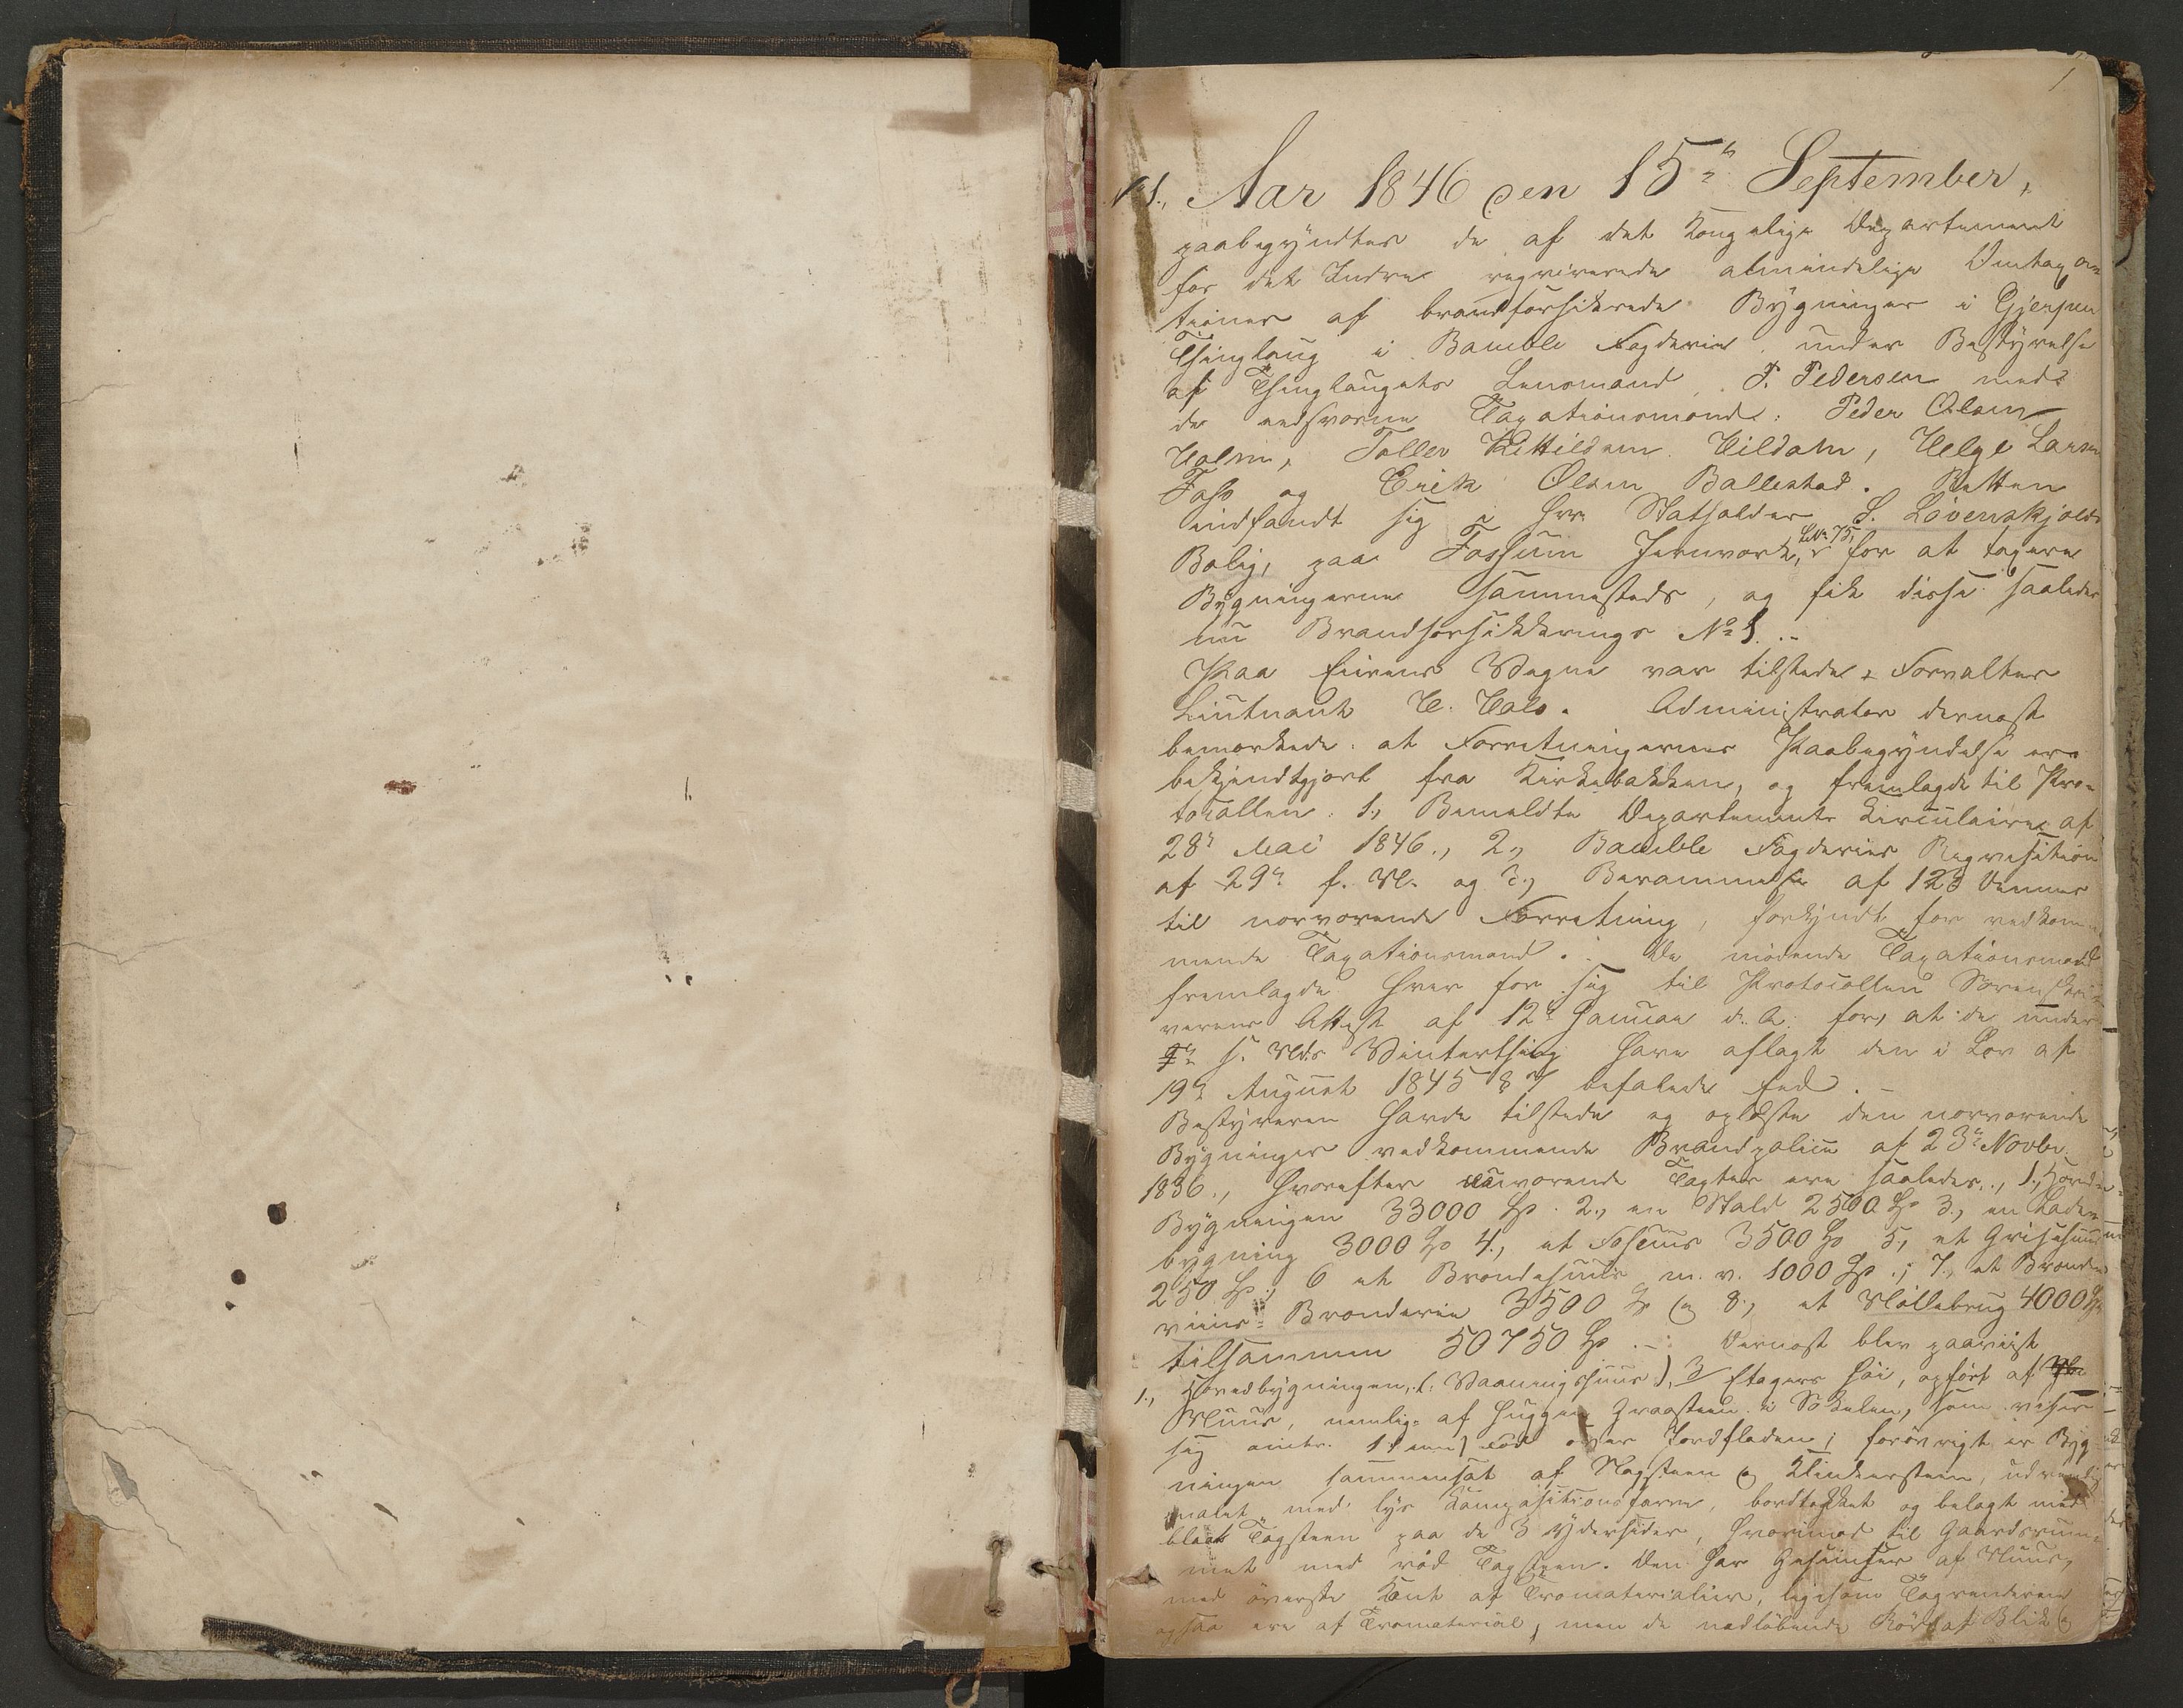 1
N 1., Aar 1846 den 15de September,
paabegyndtes de af det Kongelige Departement
for det Indre reqvirerede almindelige Omtaxa-
tioner af brandforsikrede Bygninger i Gjerpen
Thinglaug i Bamble Fogderie, under Bestyrelse
af Thinglaugets Lensmand, P. Pedersen med
de edsvorne Taxationsmænd: Peder Olsen
Holm, Tollev Kittilsen Hildahl, Helge Larsen
Foss og Erik Olsen Ballestad. Retten
indfandt sig i Hrr Statholder S. Løvenskjolds
Bolig, paa Fossum Jernværk, LNo 75, for at taxere
Bygningerne sammesteds, og fik disse saaledes
nu Brandforsikkrings No 1. –
Paa Eierens Vegne var tilstede Forvalter
Liutnant H. Hals. Administrator dernæst
bemærkede: at Forretningernes Paabegyndelse er
bekjendtgjort fra Kirkebakken, og fremlagde til Pro-
tocollen: 1, Bemeldte Departements Circulaire af
28de Mai 1846., 2., Bamble Fogderies Reqvisition
af 29de f. M. og 3., Berammelse af 12te dennes
til nærværende Forretning, forkyndt for vedkom-
mende Taxationsmænd. De mødende Taxationsmænd
fremlagde hver for sig til Protocollen Sorenskri-
verens Attest af 12te Januar d. A. for, at de under
f. Mds Vinterthing have aflagt den i Lov af
19de August 1845 § 7 befalede Eed. –
Bestyreren havde tilstede og oplæste den nærværende
Bygninger vedkommende Brandpolice af 23de Novbr.
1836., hvorefter nuværende Taxter ere saaledes., 1., Hoved-
Bygningen 33000 Sp. 2., en Stald 2500 Sp 3., en Lade-
bygning 3000 Sp 4., et Fosehuus 3500 Sp 5, et Grisehuus
250 Sp., 6 et Brændehuus m. v. 1000 Sp.; 7., et Brænde-
viins-Brænderie 3500 Sp og 8., et Møllebrug 4000 Sp
tilsammen 50750 Sp. –: Dernæst blev paaviist
1., Hovedbygningen, (: Vaaningshuus), 3 Etagers høi, opført af
Muur, nemlig af huggen Graasteen i Sokelen, som viser
sig omtr. 1 (een) Fod over Jordfladen; forøvrigt er Byg-
ningen sammensat af Slagsteen og Klinkersteen, udvendig
malet med lys Kompositionsfarve, bordtækket og belagt med
blaae Tagsteen paa de 3 Ydersider, hvorimod til Gaardsrum-
met med rød Tagsteen. Den har Gesimser af Muur,
med øverste Kant af Træmaterialier, ligesom Tagrenderne
ogsaa ere af Træmaterial, men de nedløbende Rør af Blik og